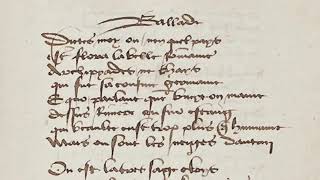 Ballade
Dictes moy ou nen quel pays
Est flora la belle Romaine
Archipyades ne thays
qui fut sa cousine germaine
Echo parlant quant bruyt on maine
dessus riuiere ou sus estang
qui beaulte eust trop plus humaine
Mais ou sont les neiges dantan
Ou est la tres sage